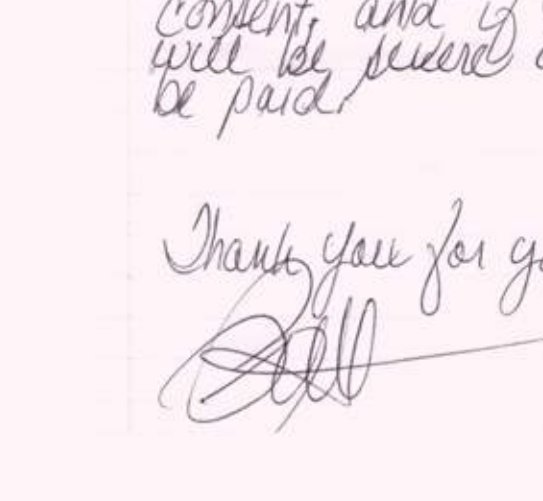 consent, and if
will be severe
be paid.
Thank you for